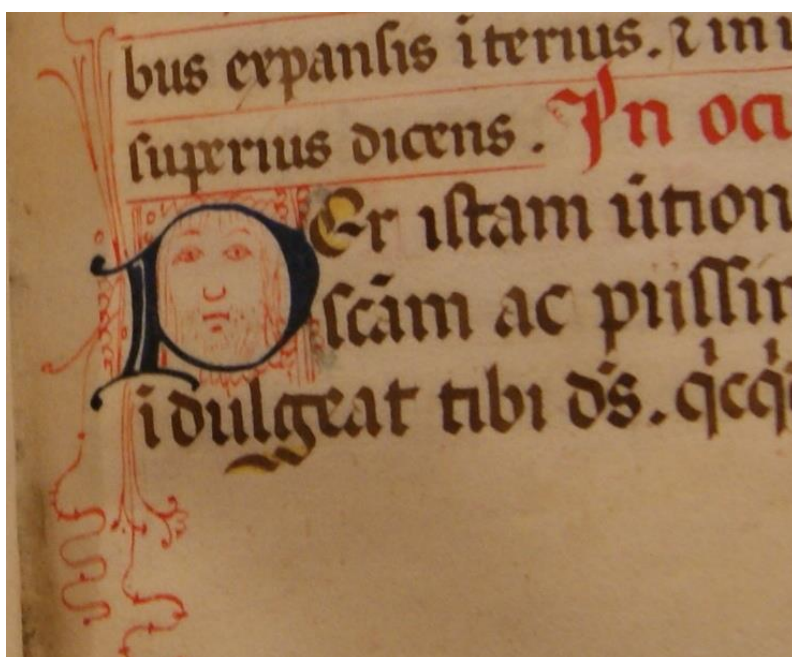 bus expansis īterius. ⁊ in i
superius dicens. In ocu
PEr istam ūction
scām ac piissim
īdulgeat tibi ds̄. qͥcqͥ